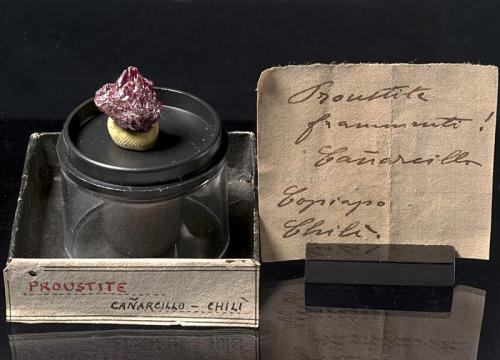 PROUSTITE
CAÑARCILLO – CHILÌ
Proustite
frammenti!
Cañarcillo
Copiapo
Chilì.